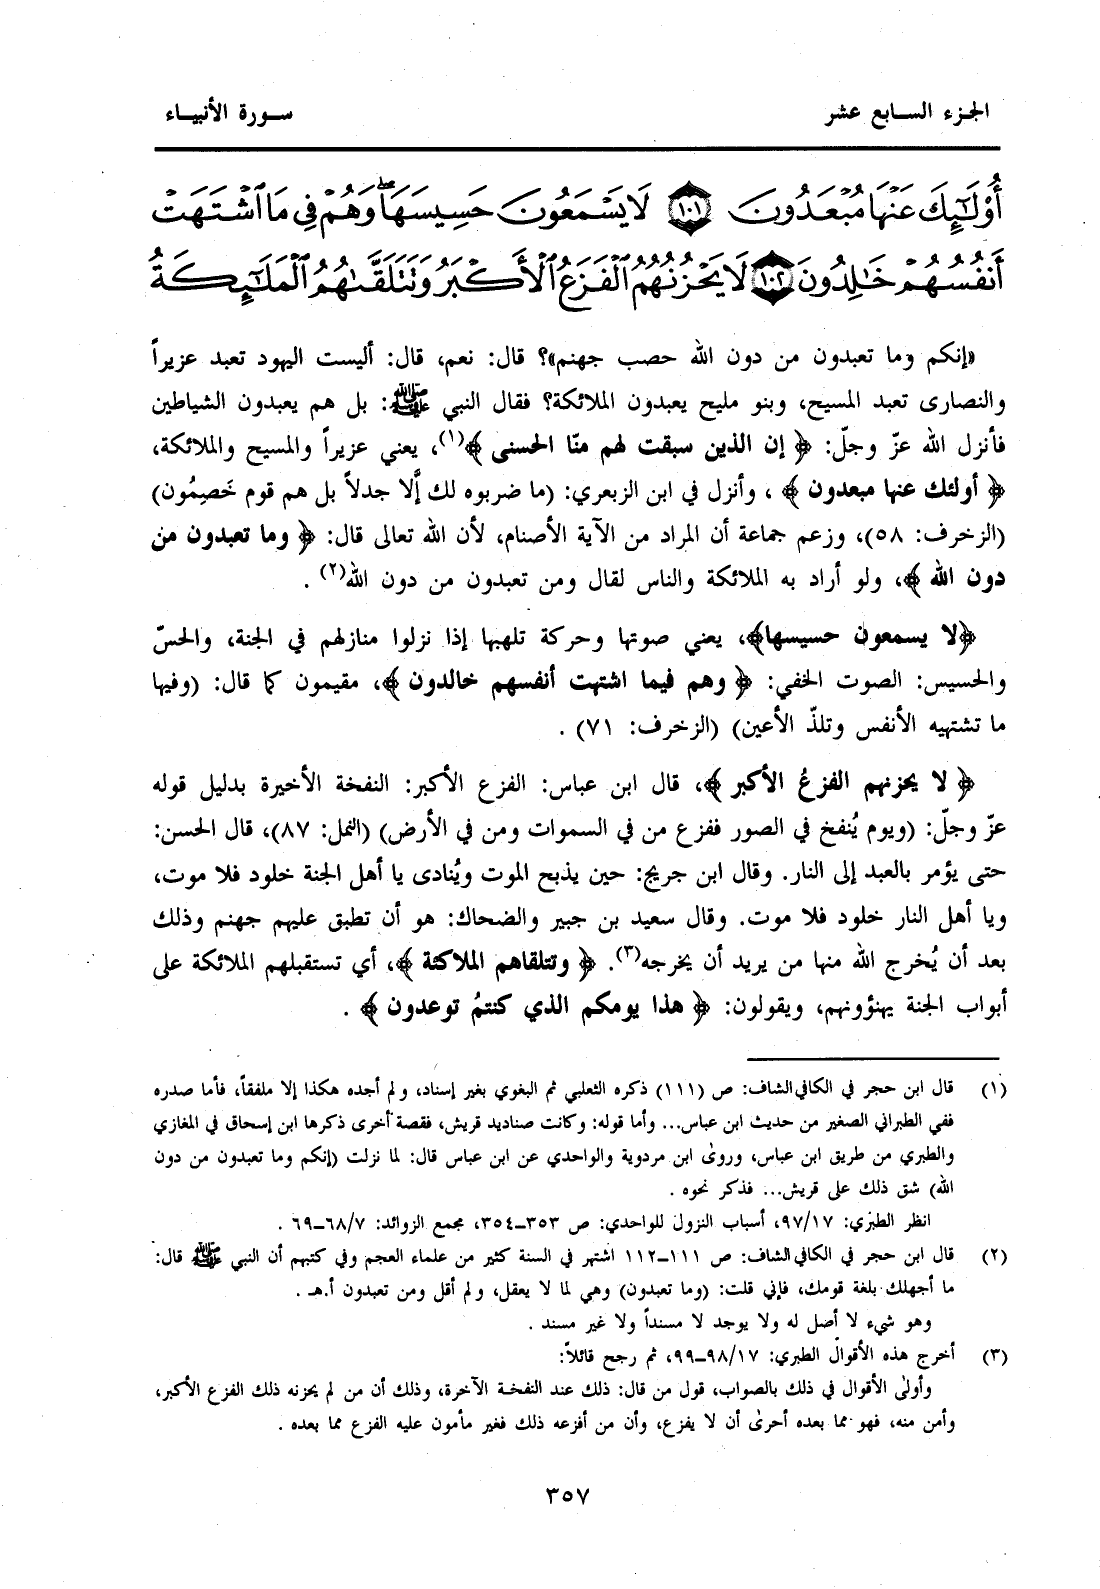 الجزء السابع عشر
سورة الأنبياء
أُوْلَٰٓئِكَ عَنْهَا مُبْعَدُونَ ١٠١ لَا يَسْمَعُونَ حَسِيسَهَا ۖ وَهُمْ فِى مَا ٱشْتَهَتْ
أَنفُسُهُمْ خَٰلِدُونَ ١٠٢ لَا يَحْزُنُهُمُ ٱلْفَزَعُ ٱلْأَكْبَرُ وَتَتَلَقَّىٰهُمُ ٱلْمَلَٰٓئِكَةُ
«إنكم وما تعبدون من دون الله حصب جهنم»؟ قال: نعم، قال: أليست اليهود تعبد عزيراً
والنصارى تعبد المسيح، وبنو مليح يعبدون الملائكة؟ فقال النبي ﷺ: بل هم يعبدون الشياطين
فأنزل الله عزّ وجلّ: ﴿ إن الذين سبقت لهم منّا الحسنى ﴾(١)، يعني عزيراً والمسيح والملائكة،
﴿ أولئك عنها مبعدون ﴾ ، وأنزل في ابن الزبعري: (ما ضربوه لك إَّلا جدلاً بل هم قوم خَصِمُون)
(الزخرف: ٥٨)، وزعم جماعة أن المراد من الآية الأصنام، لأن الله تعالى قال: ﴿ وما تعبدون من
دون الله ﴾، ولو أراد به الملائكة والناس لقال ومن تعبدون من دون الله(٢) .
﴿لا يسمعون حسيسها﴾، يعني صوتها وحركة تلهبها إذا نزلوا منازلهم في الجنة، والحسّ
والحسيس: الصوت الخفي: ﴿ وهم فيما اشتهت أنفسهم خالدون ﴾، مقيمون كما قال: (وفيها
ما تشتهيه الأنفس وتلذّ الأعين) (الزخرف: ٧١) .
﴿ لا يحزنهم الفزعُ الأكبر ﴾، قال ابن عباس: الفزع الأكبر: النفخة الأخيرة بدليل قوله
عزّ وجلّ: (ويوم يُنفخ في الصور ففزع من في السموات ومن في الأرض) (النمل: ٨٧)، قال الحسن:
حتى يؤمر بالعبد إلى النار. وقال ابن جريج: حين يذبح الموت ويُنادى يا أهل الجنة خلود فلا موت،
ويا أهل النار خلود فلا موت. وقال سعيد بن جبير والضحاك: هو أن تطبق عليهم جهنم وذلك
بعد أن يُخرج الله منها من يريد أن يخرجه(٣). ﴿ وتتلقاهم الملاكئة ﴾، أي تستقبلهم الملائكة على
أبواب الجنة يهنؤونهم، ويقولون: ﴿ هذا يومكم الذي كنتمُ توعدون ﴾ .
(١) قال ابن حجر في الكافي الشاف: ص (١١١) ذكره الثعلبي ثم البغوي بغير إسناد، ولم أجده هكذا إلا ملفقاً، فأما صدره
ففي الطبراني الصغير من حديث ابن عباس... وأما قوله: وكانت صناديد قريش، فقصة أخرى ذكرها ابن إسحاق في المغازي
والطبري من طريق ابن عباس، وروىٰ ابن مردوية والواحدي عن ابن عباس قال: لما نزلت (إنكم وما تعبدون من دون
الله) شق ذلك على قريش... فذكر نحوه .
انظر الطبري: ٩٧/١٧، أسباب النزول للواحدي: ص ٣٥٣ــ٣٥٤، مجمع الزوائد: ٦٨/٧ــ٦٩ .
(٢) قال ابن حجر في الكافي الشاف: ص ١١١ــ١١٢ اشتهر في السنة كثير من علماء العجم وفي كتبهم أن النبي ﷺ قال:
ما أجهلك بلغة قومك، فإني قلت: (وما تعبدون) وهي لما لا يعقل، ولم أقل ومن تعبدون أ.هـ .
وهو شيء لا أصل له ولا يوجد لا مسنداً ولا غير مسند .
(٣) أخرج هذه الأقوال الطبري: ٩٨/١٧ــ٩٩، ثم رجح قائلاً:
وأولىٰ الأقوال في ذلك بالصواب، قول من قال: ذلك عند النفخة الآخرة، وذلك أن من لم يحزنه ذلك الفزع الأكبر،
وأمن منه، فهو مما بعده أحرىٰ أن لا يفزع، وأن من أفزعه ذلك فغير مأمون عليه الفزع مما بعده .
٣٥٧